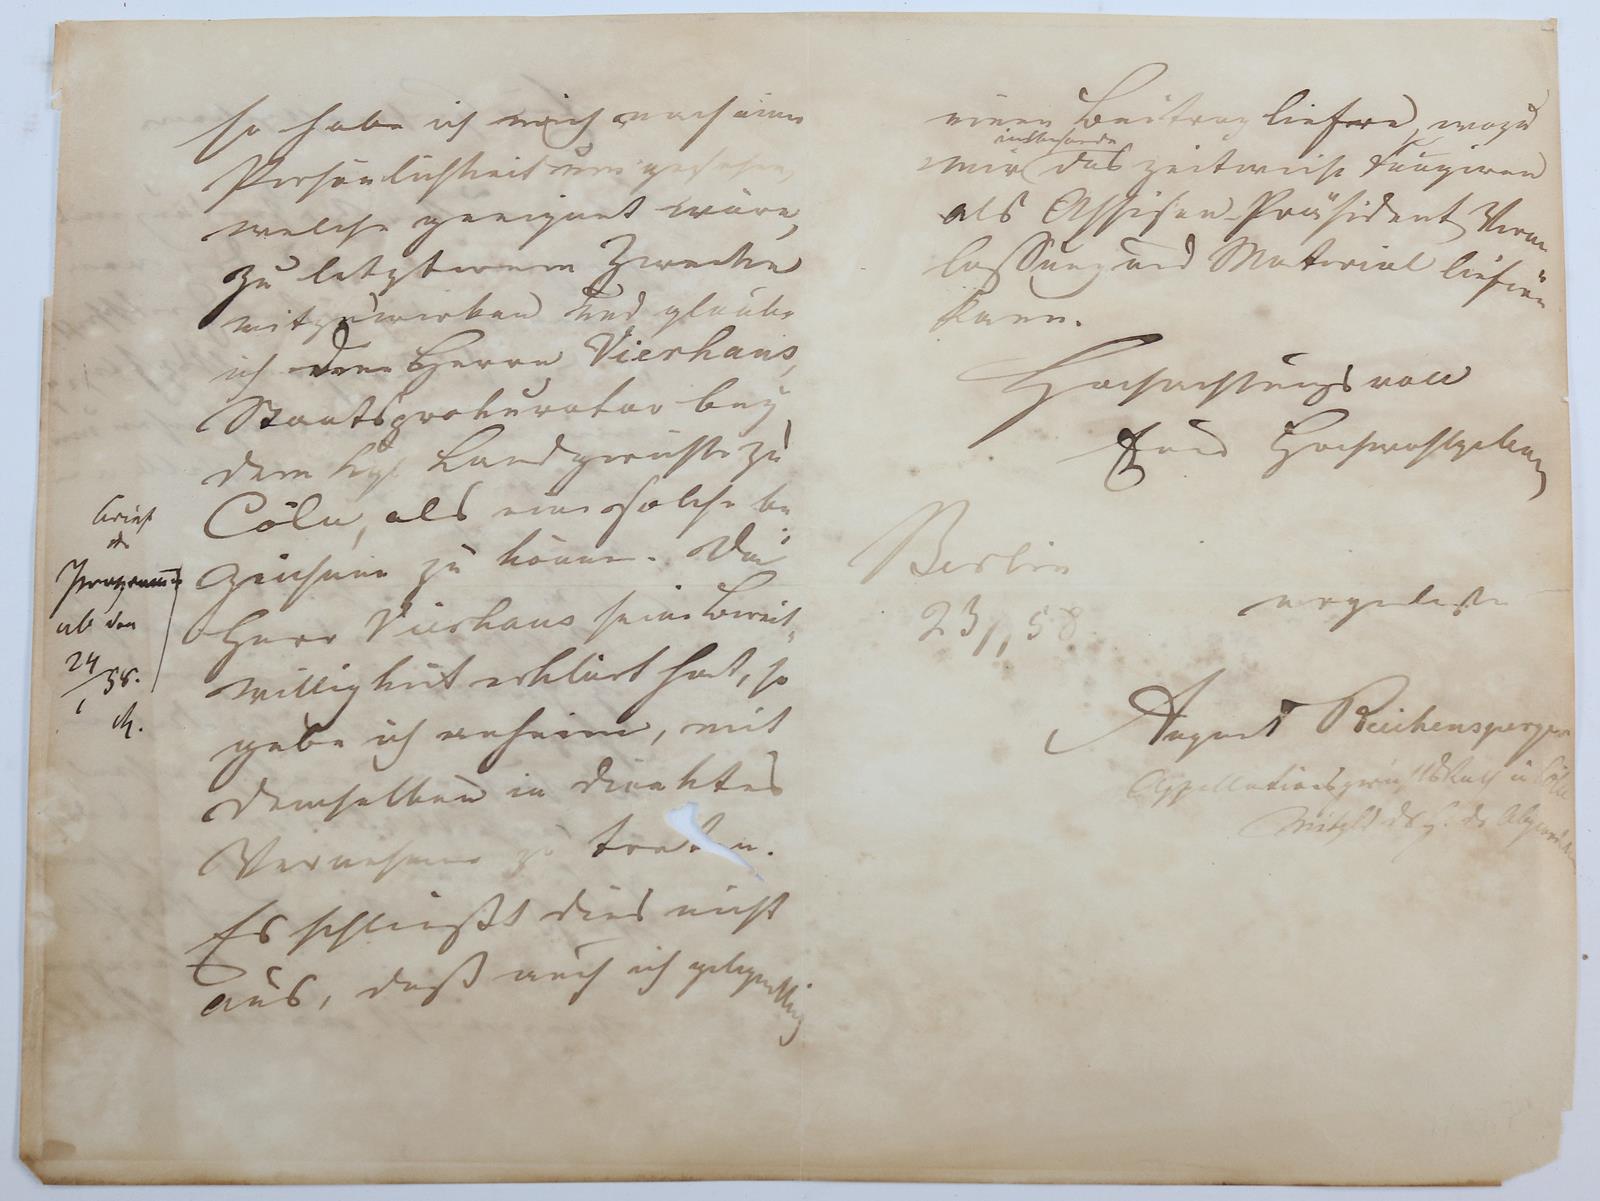 so habe ich mich nach einer
Persönlichkeit umgesehen,
welche geeignet wäre,
zu letzterem Zwecke
mitzuwirken und glaube
ich den Herrn Vierhaus,
Staatsprokurator bey
dem kgl. Landgerichte zu
Cöln, als eine solche be
zeichnen zu können. Da
Herr Vierhaus seine Bereit„
willigkeit erklärt hat, so
gebe ich anheim, mit
demselben in direktes
Vernehmen zu treten.
Es schließt dies nicht
aus, daß auch ich gelegentlich
Brief
Programm
ab den
24/1 58.
einen Beitrag liefere, wozu
insbesondere
mir das zeitweise Fungiren
als Assisen-Präsident Veran
lassung und Material liefern
kann.
Hochachtungsvoll
Euer Hochwohlgeboren
Berlin
23/1 58
ergebenster
August Reichensperger
Appellationsgerichtsrath in Cöln
Mitgld. des H. der Abgeordn